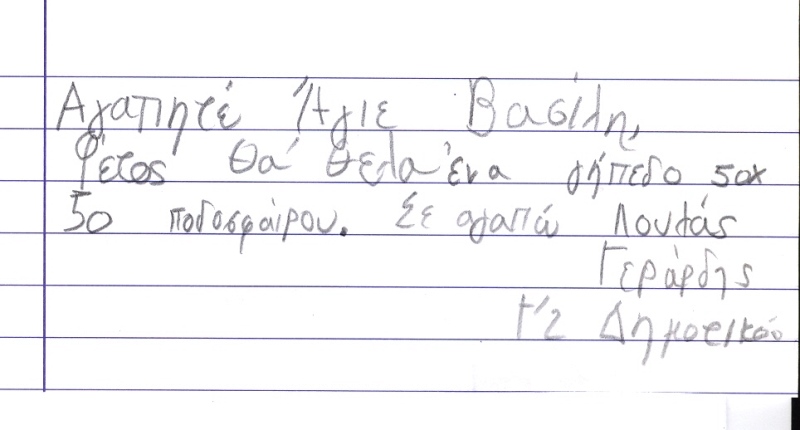 Αγαπητέ Άγιε Βασίλη,
Φέτος θα θελα ένα γήπεδο 50x
50 ποδοσφαίρου. Σε αγαπώ Λουκάς
Γεράρδης
Γ'2 Δημοτικού